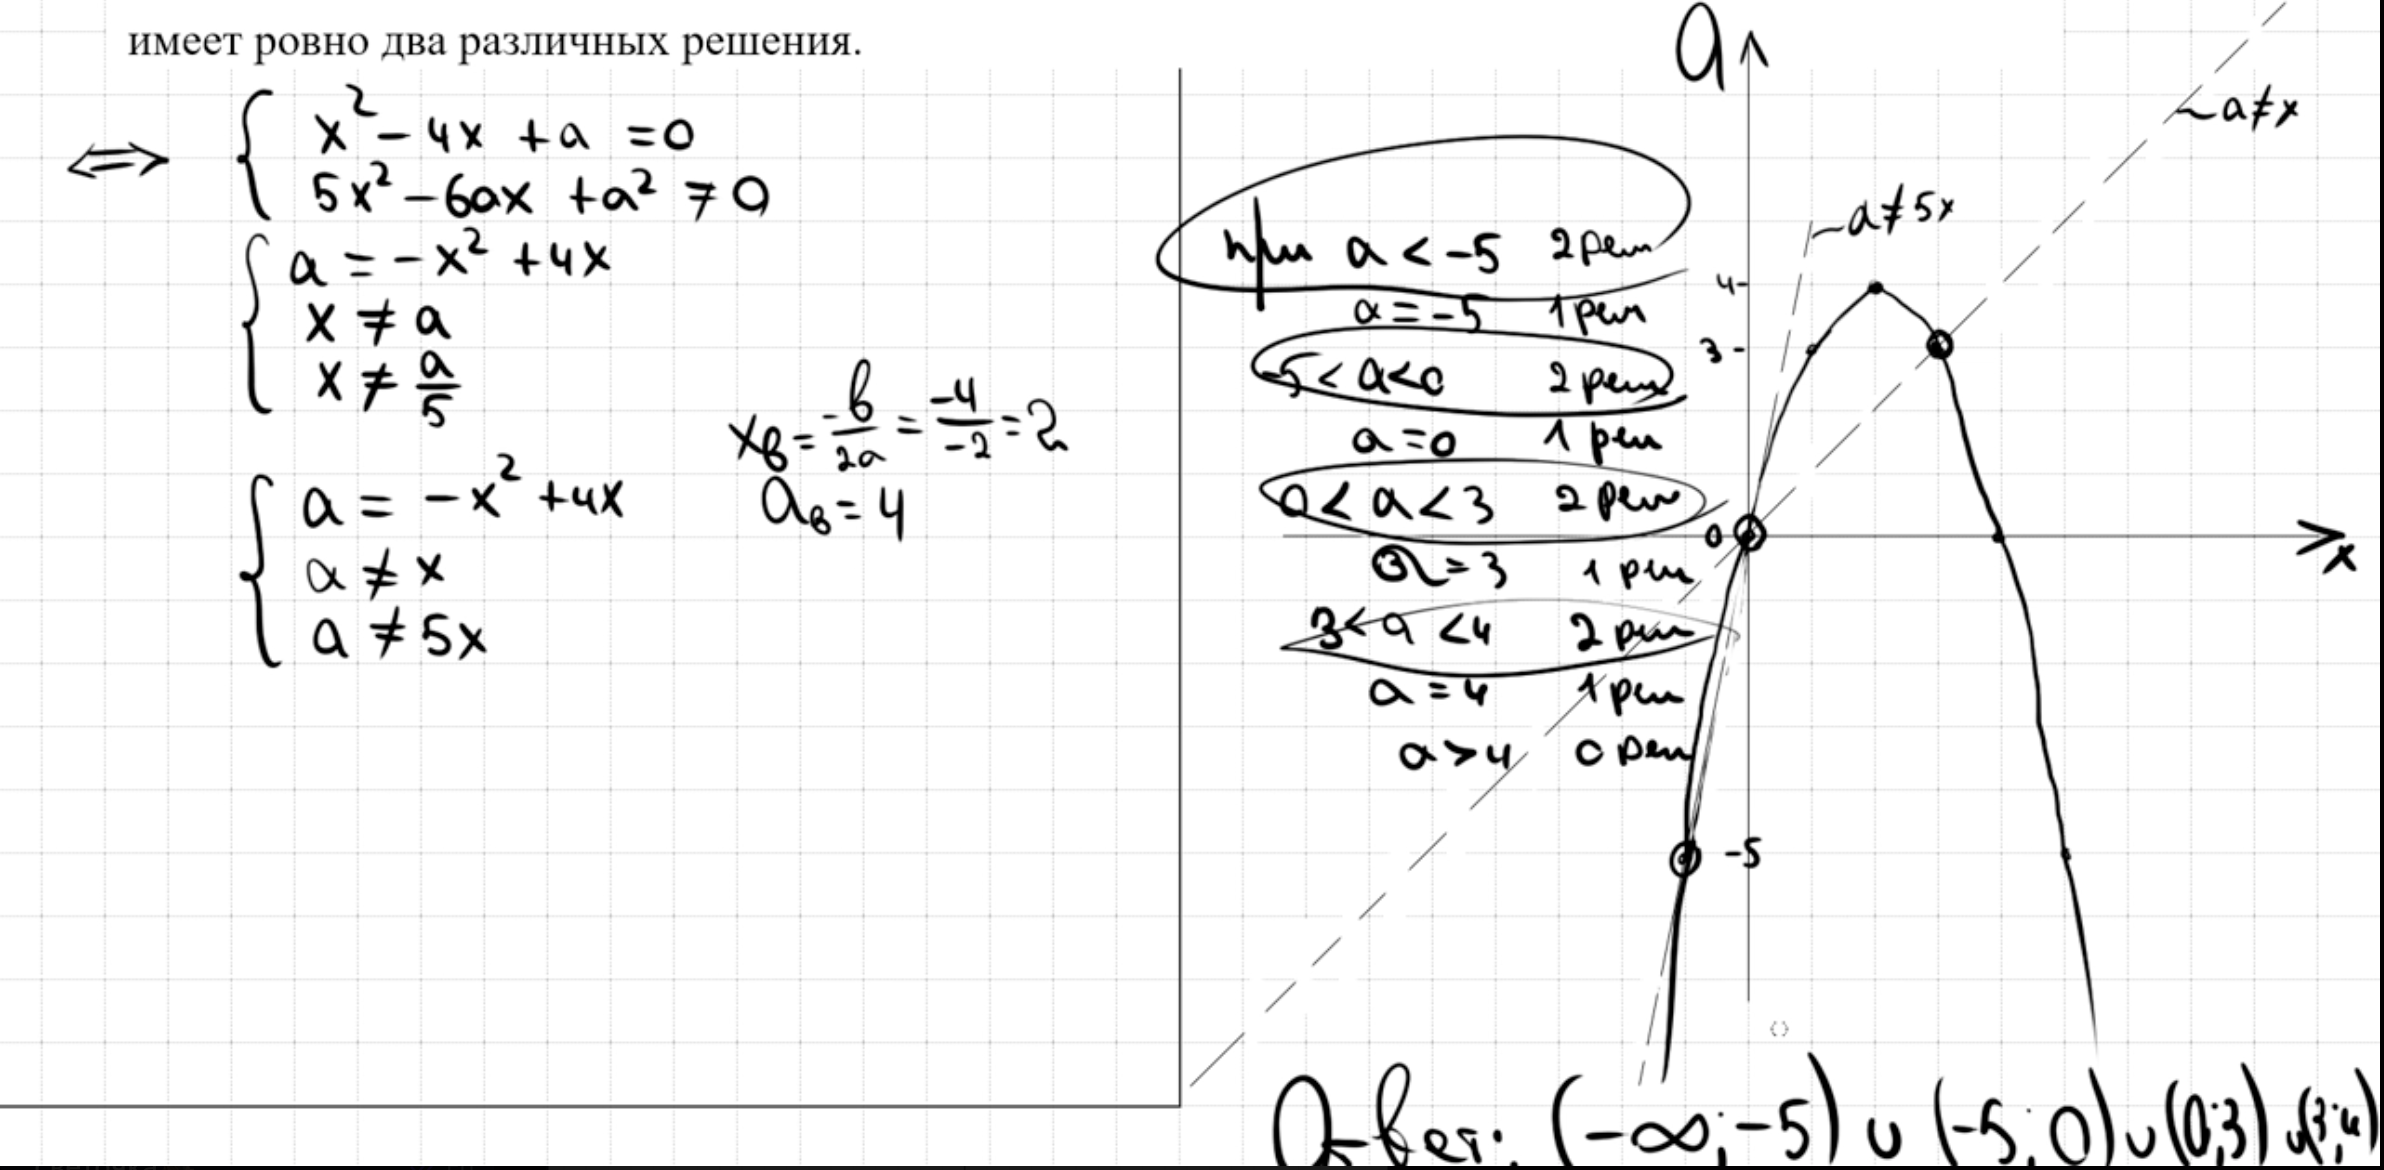 имеет ровно два различных решения.
⟺ { x² - 4x + a = 0
5x² - 6ax + a² ≠ 0
{ a = -x² + 4x
x ≠ a
x ≠ a/5
xв = -b/2a = -4/-2 = 2
aв = 4
{ a = -x² + 4x
a ≠ x
a ≠ 5x
при a < -5 2 реш
a = -5 1 реш
-5 < a < 0 2 реш
a = 0 1 реш
0 < a < 3 2 реш
a = 3 1 реш
3 < a < 4 2 реш
a = 4 1 реш
a > 4 0 реш
a
a ≠ x
a ≠ 5x
4
3
0
x
-5
Ответ: (-∞; -5) ∪ (-5; 0) ∪ (0; 3) ∪ (3; 4)